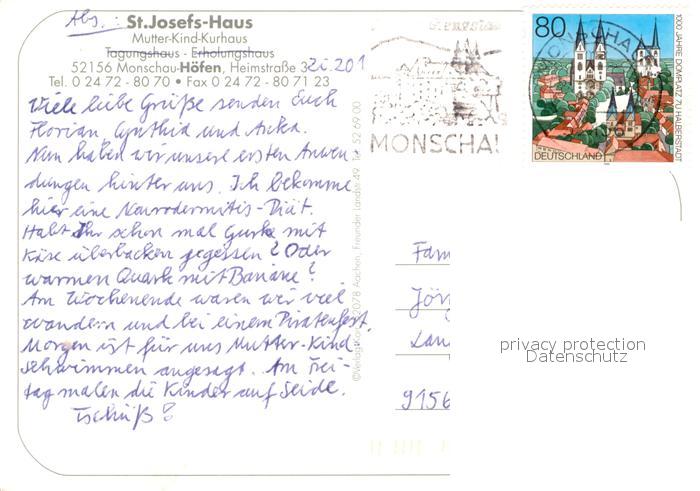 Abs.: St.Josefs-Haus
Mutter-Kind-Kurhaus
Tagungshaus - Erholungshaus
52156 Monschau-Höfen, Heimstraße 3
Zi. 201
Tel. 0 24 72 - 80 70 • Fax 0 24 72 - 80 71 23
Viele liebe Grüße senden Euch
Florian Cynthia und Anka.
Nun haben wir unsere ersten Anwen-
dungen hinter uns. Ich bekomme
hier eine Neurodermitis-Diät.
Habt Ihr schon mal Gurke mit
Käse überbacken gegessen? Oder
warmen Quark mit Banane?
Am Wochenende waren wir viel
wandern und bei einem Piratenfest.
Morgen ist für uns Mutter-Kind
schwimmen angesagt. Am Frei-
tag malen die Kinder auf Seide.
Tschüß!
52078 Aachen, Freunder Landstr. 49, Tel. 52 69 00
MONSCHA
80
1000 JAHRE DOMPLATZ ZU HALBERSTADT
DEUTSCHLAND
MONSCHA
Fam
Jörg
Lan
9156
privacy protection
Datenschutz